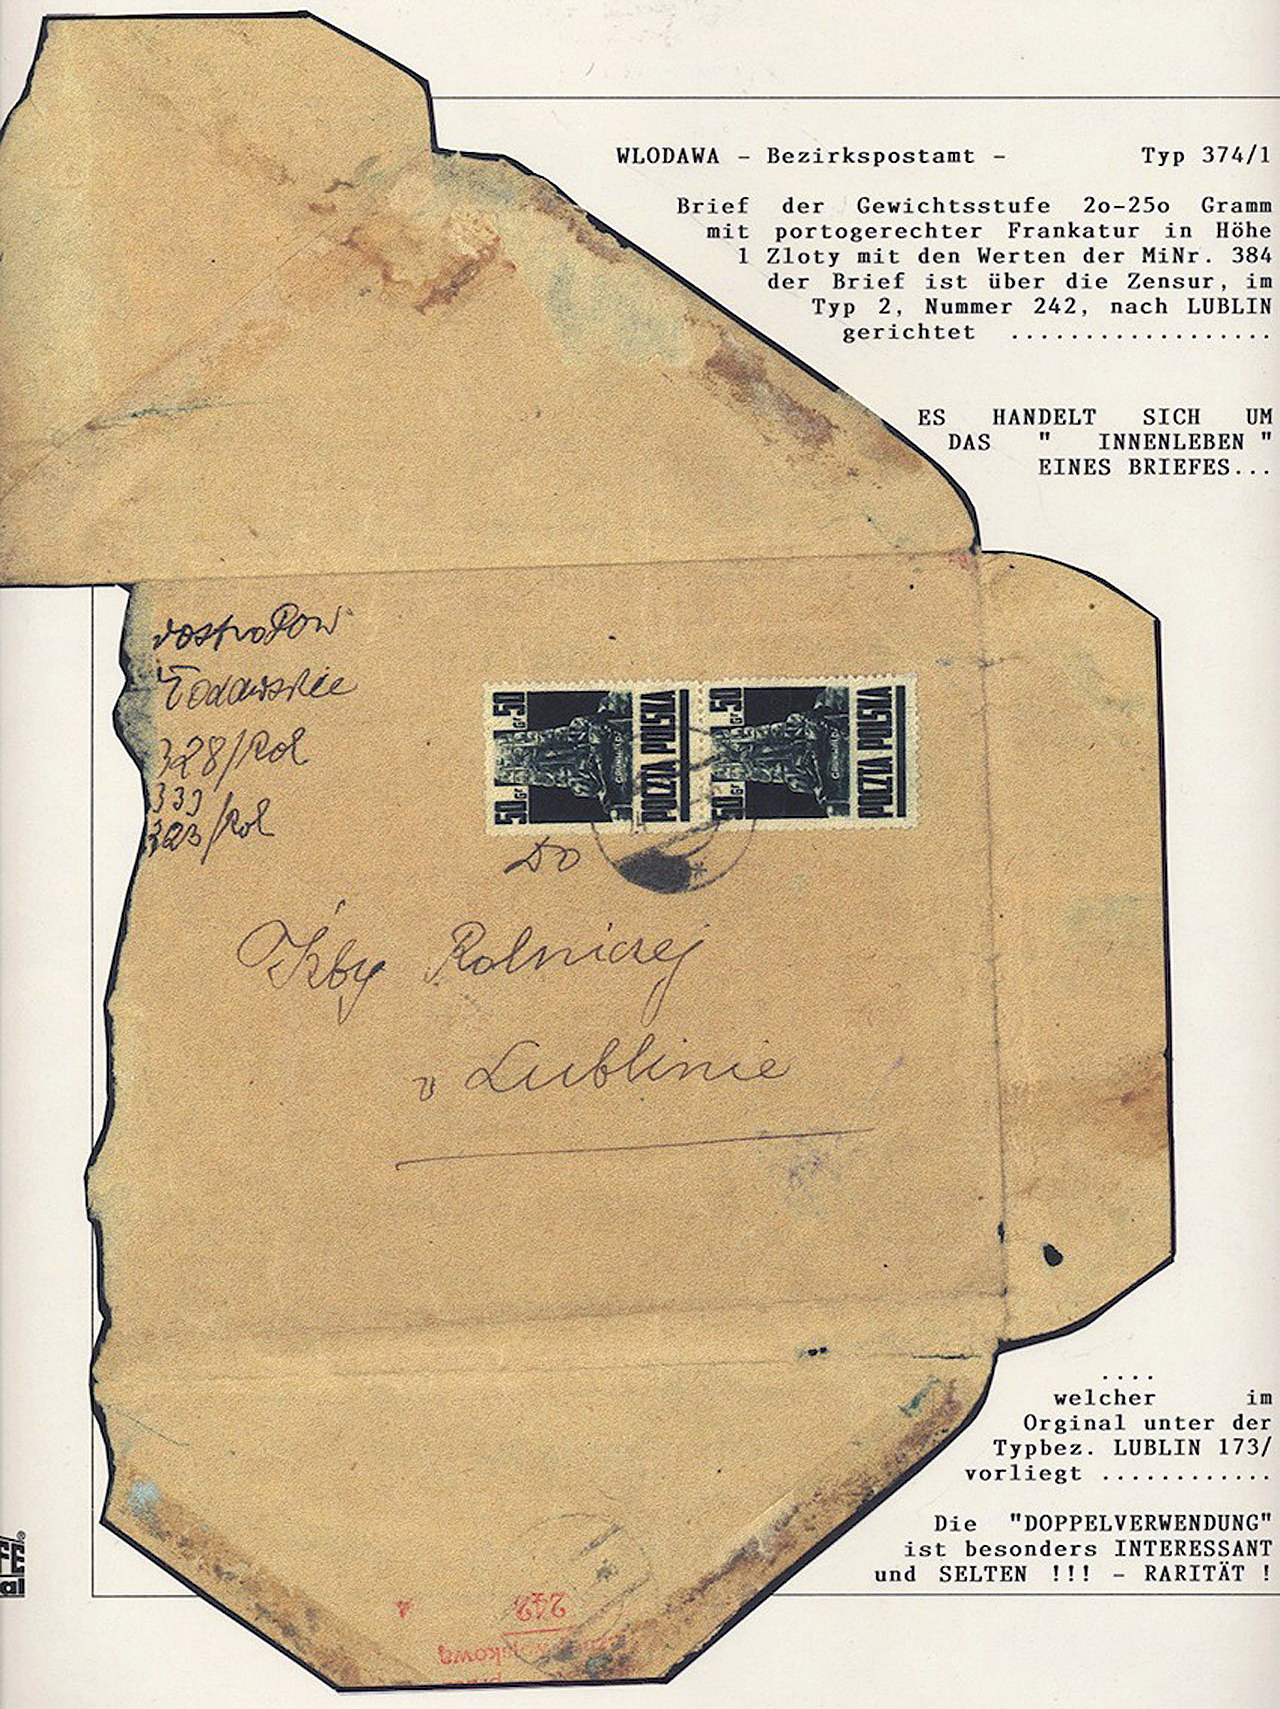 WLODAWA - Bezirkspostamt - Typ 374/1
Brief der Gewichtsstufe 2o-25o Gramm
mit portogerechter Frankatur in Höhe
1 Zloty mit den Werten der MiNr. 384
der Brief ist über die Zensur, im
Typ 2, Nummer 242, nach LUBLIN
gerichtet ..................
ES HANDELT SICH UM
DAS " INNENLEBEN "
EINES BRIEFES...
328/Rol
333
323/Rol
50 Gr 50
GRUNWALD
POCZTA POLSKA
50 Gr 50
GRUNWALD
POCZTA POLSKA
Do
Izby Rolniczej
w Lublinie
....
welcher im
Orginal unter der
Typbez. LUBLIN 173/
vorliegt ............
Die "DOPPELVERWENDUNG"
ist besonders INTERESSANT
und SELTEN !!! - RARITÄT !
242